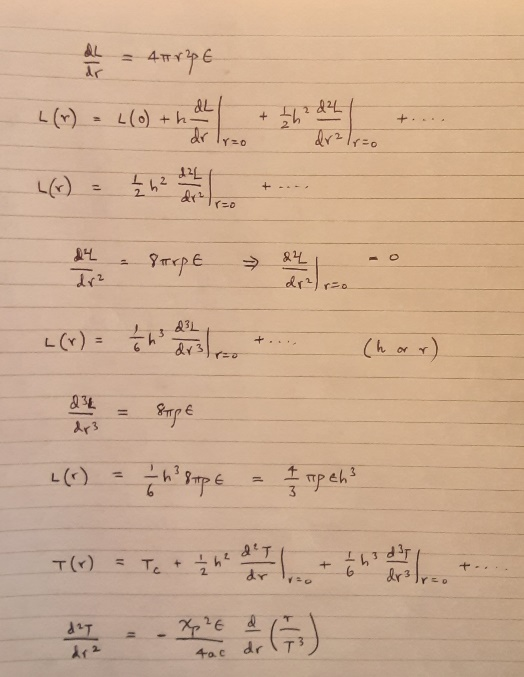 dL/dr = 4πr²ρε
L(r) = L(0) + h dL/dr |r=0 + 1/2 h² d²L/dr² |r=0 + ....
L(r) = 1/2 h² d²L/dr² |r=0 + ....
d²L/dr² = 8πrρε ⇒ d²L/dr² |r=0 = 0
L(r) = 1/6 h³ d³L/dr³ |r=0 + .... (h or r)
d³L/dr³ = 8πρε
L(r) = 1/6 h³ 8πρε = 4/3 πρεh³
T(r) = Tc + 1/2 h² d²T/dr |r=0 + 1/6 h³ d³T/dr³ |r=0 + ....
d²T/dr² = - χρ²ε/4ac d/dr (r/T³)